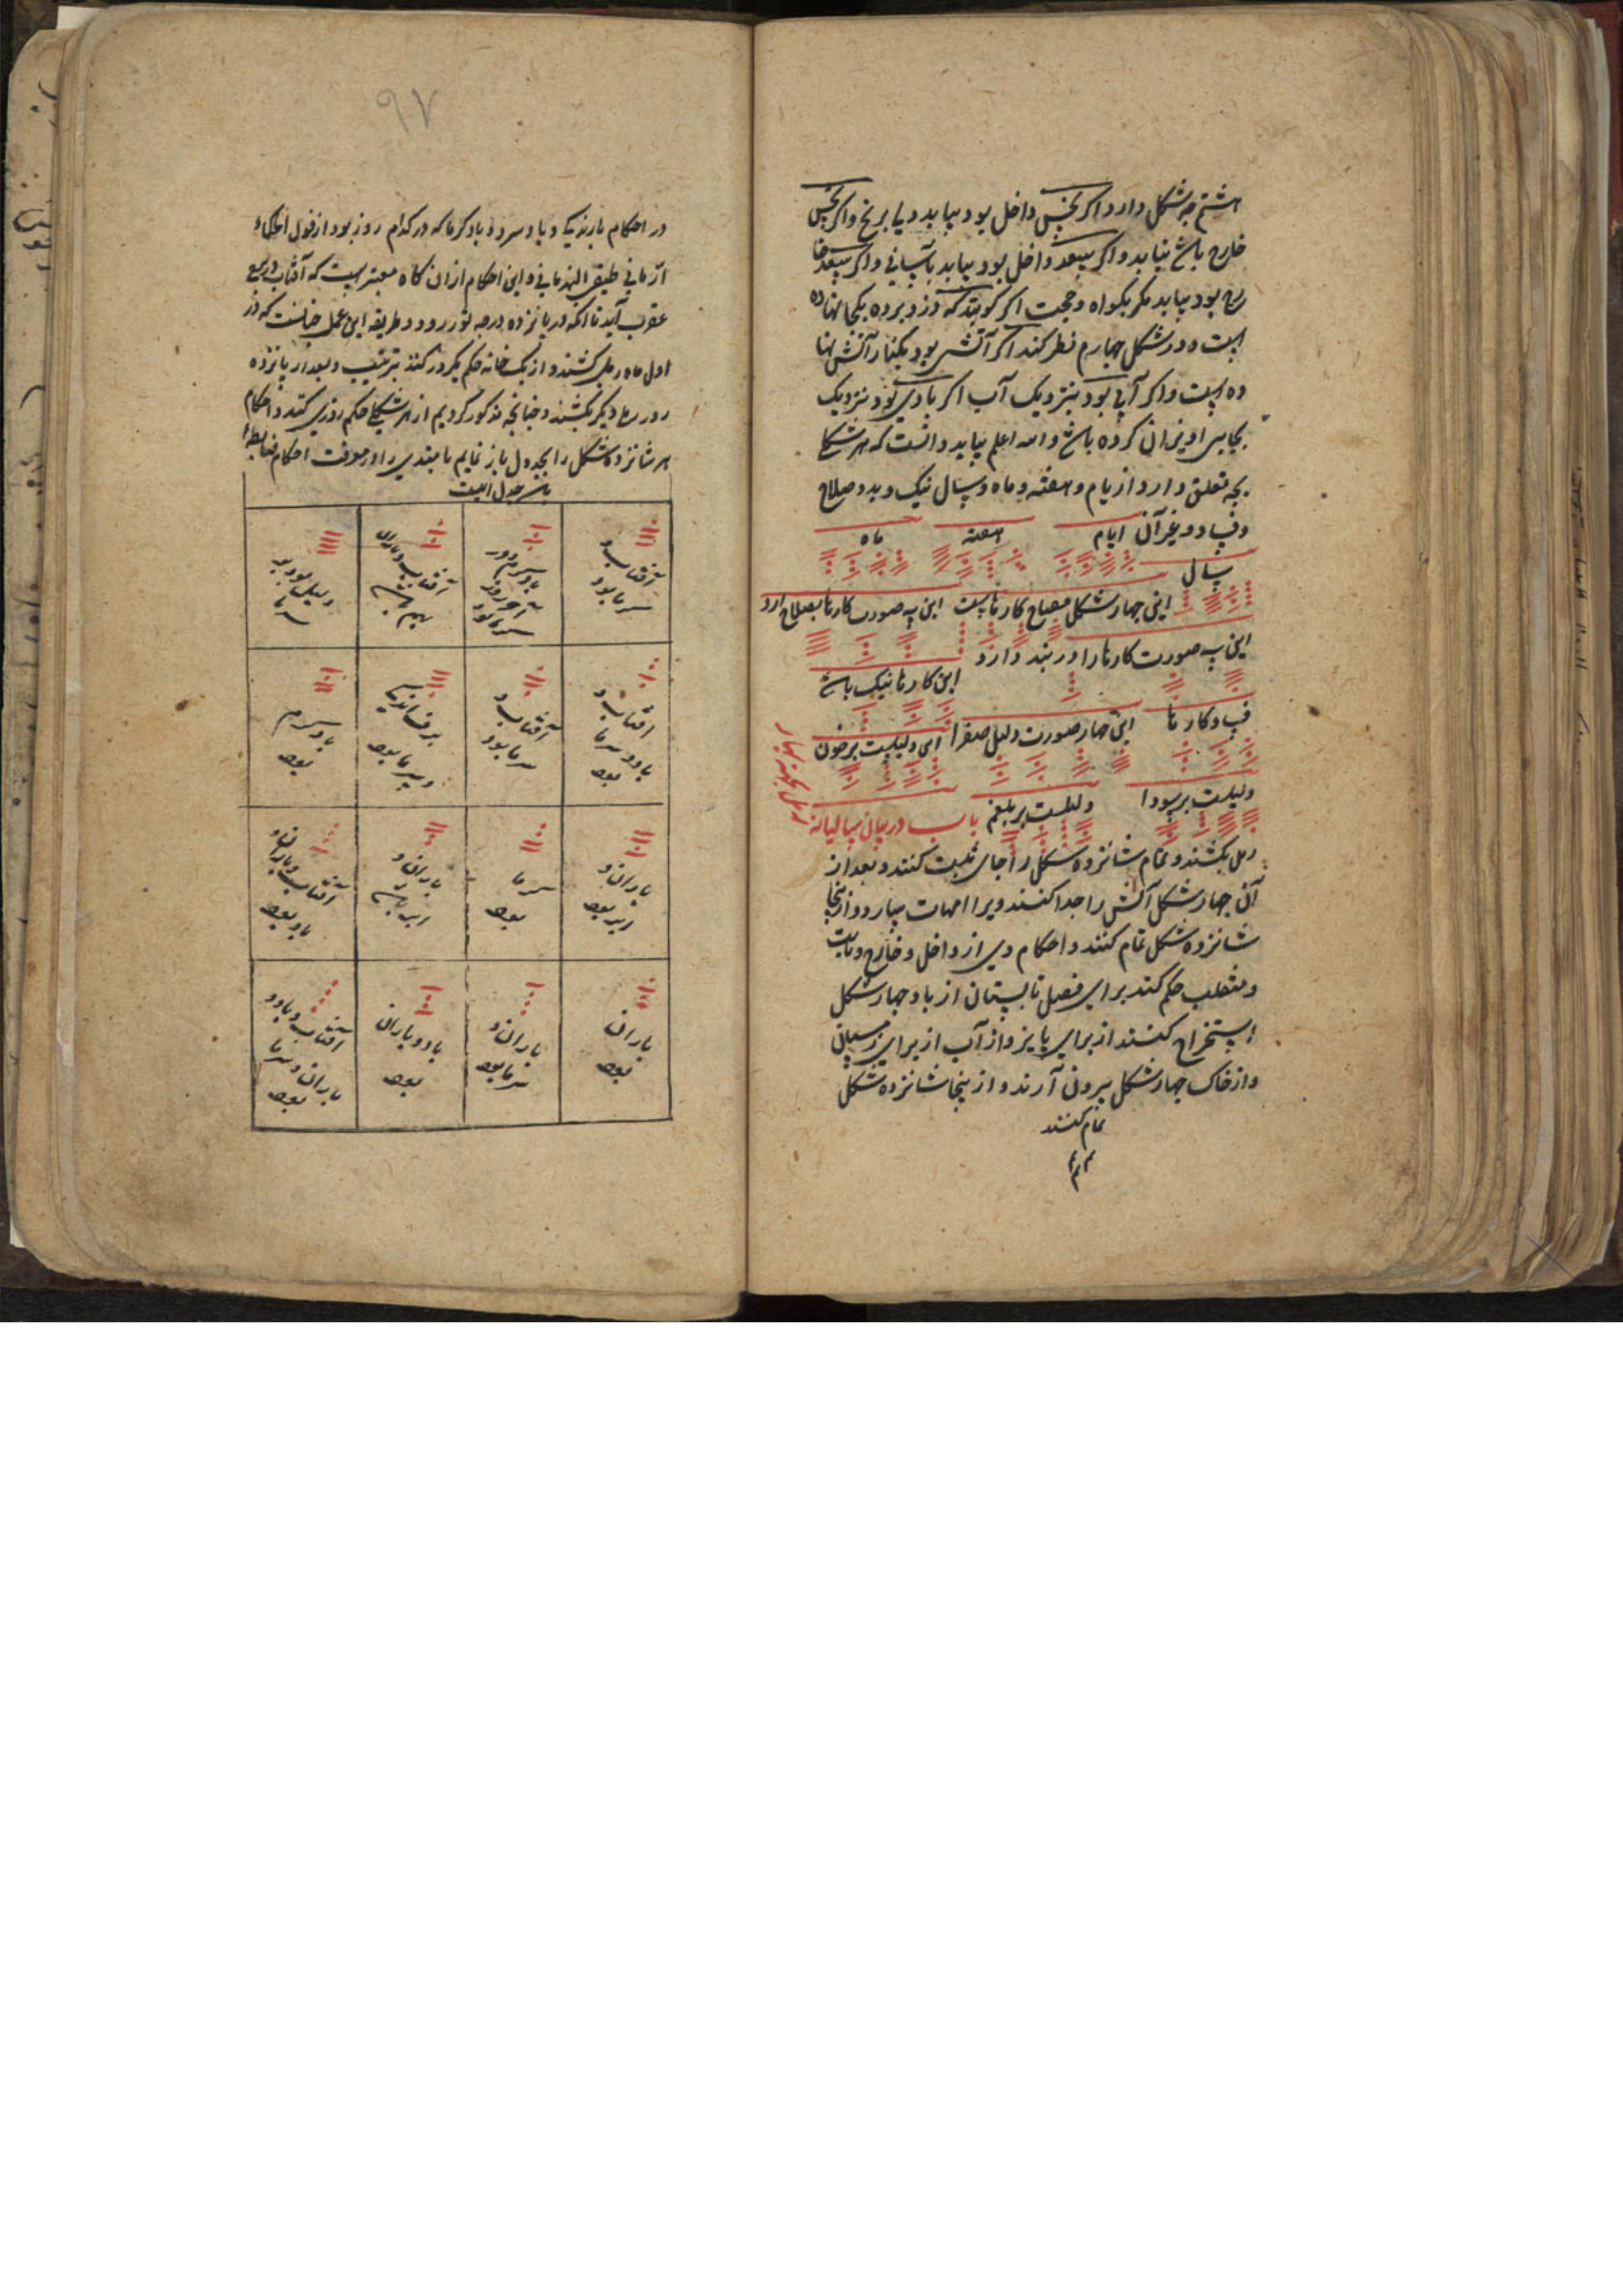 هشتم چه شکل دارد اکر نحس داخل بود بیابد ویا برنج واکر نحس
خارج باشد نیابد واکر سعد داخل بود بیابد بآسانی واکر سعد خا
رج بود بیابد مکر بکواه وحجت اکر کویند که دزد برده بکجا نهاده
است ودر شکل چهارم نظر کند اکر آتشی بود بکنار آتش نها
ده است واکر آبی بود بنزدیک آب اکر بادی بود نزدیک
بجایی اویزان کرده باشد والله اعلم بباید دانست که هر شکل
بچه تعلق دارد از یام وهفته وماه وسال نیک وبد وصلاح
وفساد وغیر آن ایام هفته ماه
سال
این چهار شکل مصباح کارهاست این سه صورت کارها بصلاح ارد
این سه صورت کارها را در بند دارد
این کارها نیک باشد
فساد کارها این چهار صورت دلیل صفرا این دلیلست برخون
دلیلست بر سودا دلیلست بر بلغم باب در بیان سالیانه
رمل بکشند وتمام شانزده شکل را جای ثبت کنند وبعد از
آن چهار شکل آتش را جدا کنند ویرا امهات سازد واز ینجا
شانزده شکل تمام کنند واحکام وی از داخل وخارج وثابت
ومنقلب حکم کند برای فصل تابستان از باد چهار شکل
استخراج کنند از برای پاییز واز آب از برای زمستان
واز خاک چهار شکل بیرون آرند واز ینجا شانزده شکل
تمام کنند
۹۷
در احکام بارندیک وباد سرد وباد کرما که در کدام روز بود از قول احکاء
از مانی طبقی الهندمانی واین احکام از ان کاه معتبر است که آفتاب در برج
عقرب آید تا انکه در پانزده درجه ثور رود وطریقه این عمل چنانست که در
اول ماه رمل کشند واز یک خانه حکم یکروز کنند بترتیب وبعد از پانزده
روز رمل دیکر بکشند وچنانچه مذکور کردیم از هر شکلی حکم روزی کنند واحکام
هر شانزده شکل را بجدول باز نمایم تا مبتدی را در معرفت احکام ضابطه
باشد جدول اینست
آفتاب و
سرما بود
باد سرد بود
آخر روز
سرما بود
آفتاب وباران
بهم باشد
دلیل بود بر
سرما
افتاب و
باد وسرما
بود
آفتاب و
سرما بود
برف باشد
وسرما بود
باد سرد
بود
باران و
ابر بود
سرما
بود
باران و
ابر باشد
آفتاب وباران و
باد بود
باران
بود
باران و
سرما بود
باد وباران
بود
آفتاب وباد و
باران وسرما
بود